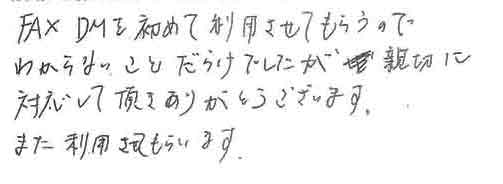 FAX DMを初めて利用させてもらうので
わからないことだらけでしたが 親切に
対応して頂きありがとうございます。
また利用させてもらいます。